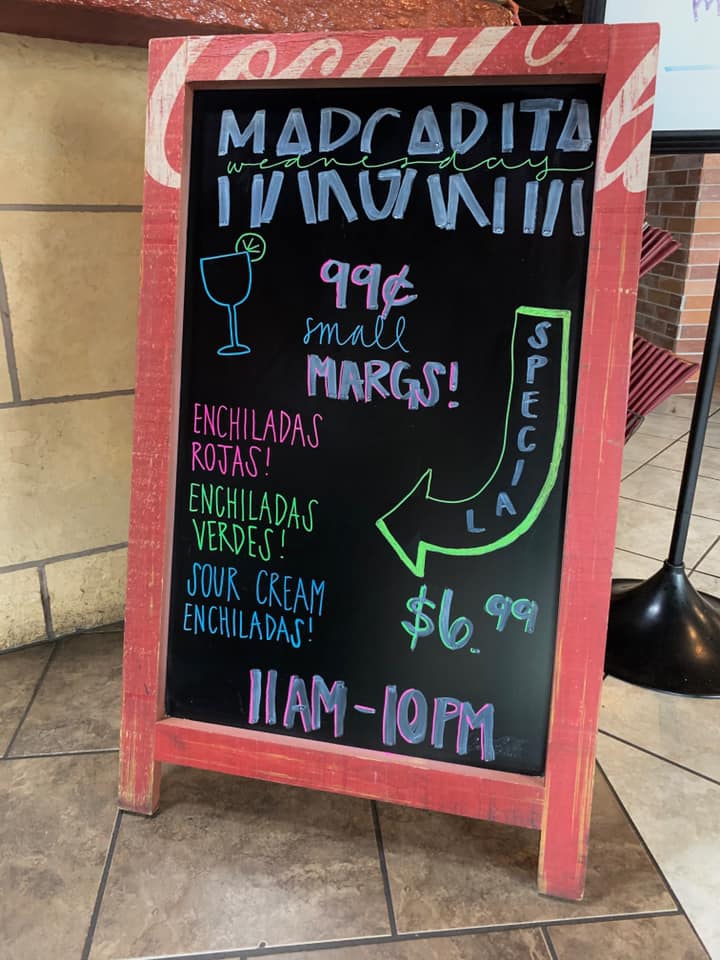 Coca-Co
MARGARITA
wednesday
99¢
small
MARGS!
SPECIAL
ENCHILADAS
ROJAS!
ENCHILADAS
VERDES!
SOUR CREAM
ENCHILADAS!
$6.99
11AM-10PM